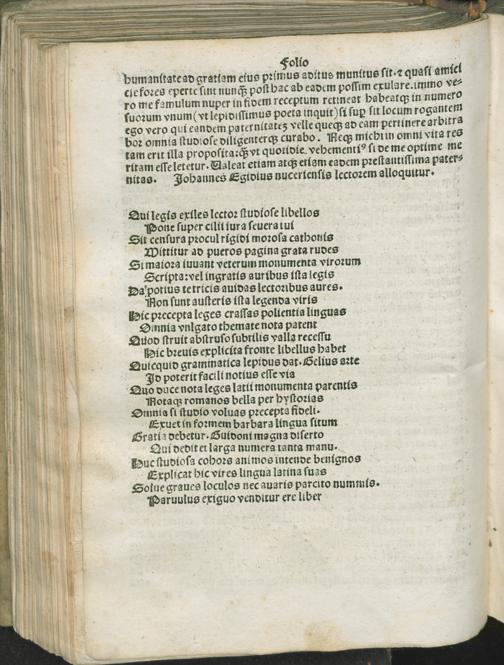 Folio
humanitate ad gratiam eius primus aditus munitus sit. ⁊ quasi amici
cie fores aperte sint nunq̄ꝫ post hac ab eadem possim exulare. immo ve-
ro me famulum nuper in fidem receptum retineat habeatqꝫ in numero
suorum vnum (vt lepidissimus poeta inquit) si suꝑ sit locum rogantem
ego vero qui eandem paternitateꝫ velle queqꝫ ad eam pertinere arbitra
bor omnia studiose diligenterqꝫ curabo. Neqꝫ michi in omni vita res
tam erit illa proposita: q̄ꝫ vt quotidie vehementiꝰ si de me optime me
ritam esse letetur. Ualeat etiam atqꝫ etiam eadem prestantissima pater-
nitas. Johannes Egidius nuceriensis lectorem alloquitur.
Qui legis exiles lector studiose libellos
Pone super cilii iura seuera tui
Sit censura procul rigidi morosa cathonis
Mittitur ad pueros pagina grata rudes
Si maiora iuuant veterum monumenta virorum
Scripta: vel ingratis auribus ista legis
Da potius tetricis auidas lectoribus aures.
Non sunt austeris ista legenda viris
Hic precepta leges crassas polientia linguas
Omnia vnlgato themate nota patent
Quod struit abstruso subtilis valla recessu
Hic breuis explicita fronte libellus habet
Quicquid grammatica lepidus dat. Gelius arte
Id poterit facili notius esse via
Quo duce nota leges latii monumenta parentis
Notaqꝫ romanos bella per hystorias
Omnia si studio voluas precepta fideli.
Exuet informem barbara lingua situm
Gratia debetur. Guidoni magna diserto
Qui dedit et larga numera tanta manu.
Huc studiosa cohors animos intende benignos
Explicat hic vires lingua latina suas
Solue graues loculos nec auaris parcito nummis.
Paruulus exiguo venditur ere liber